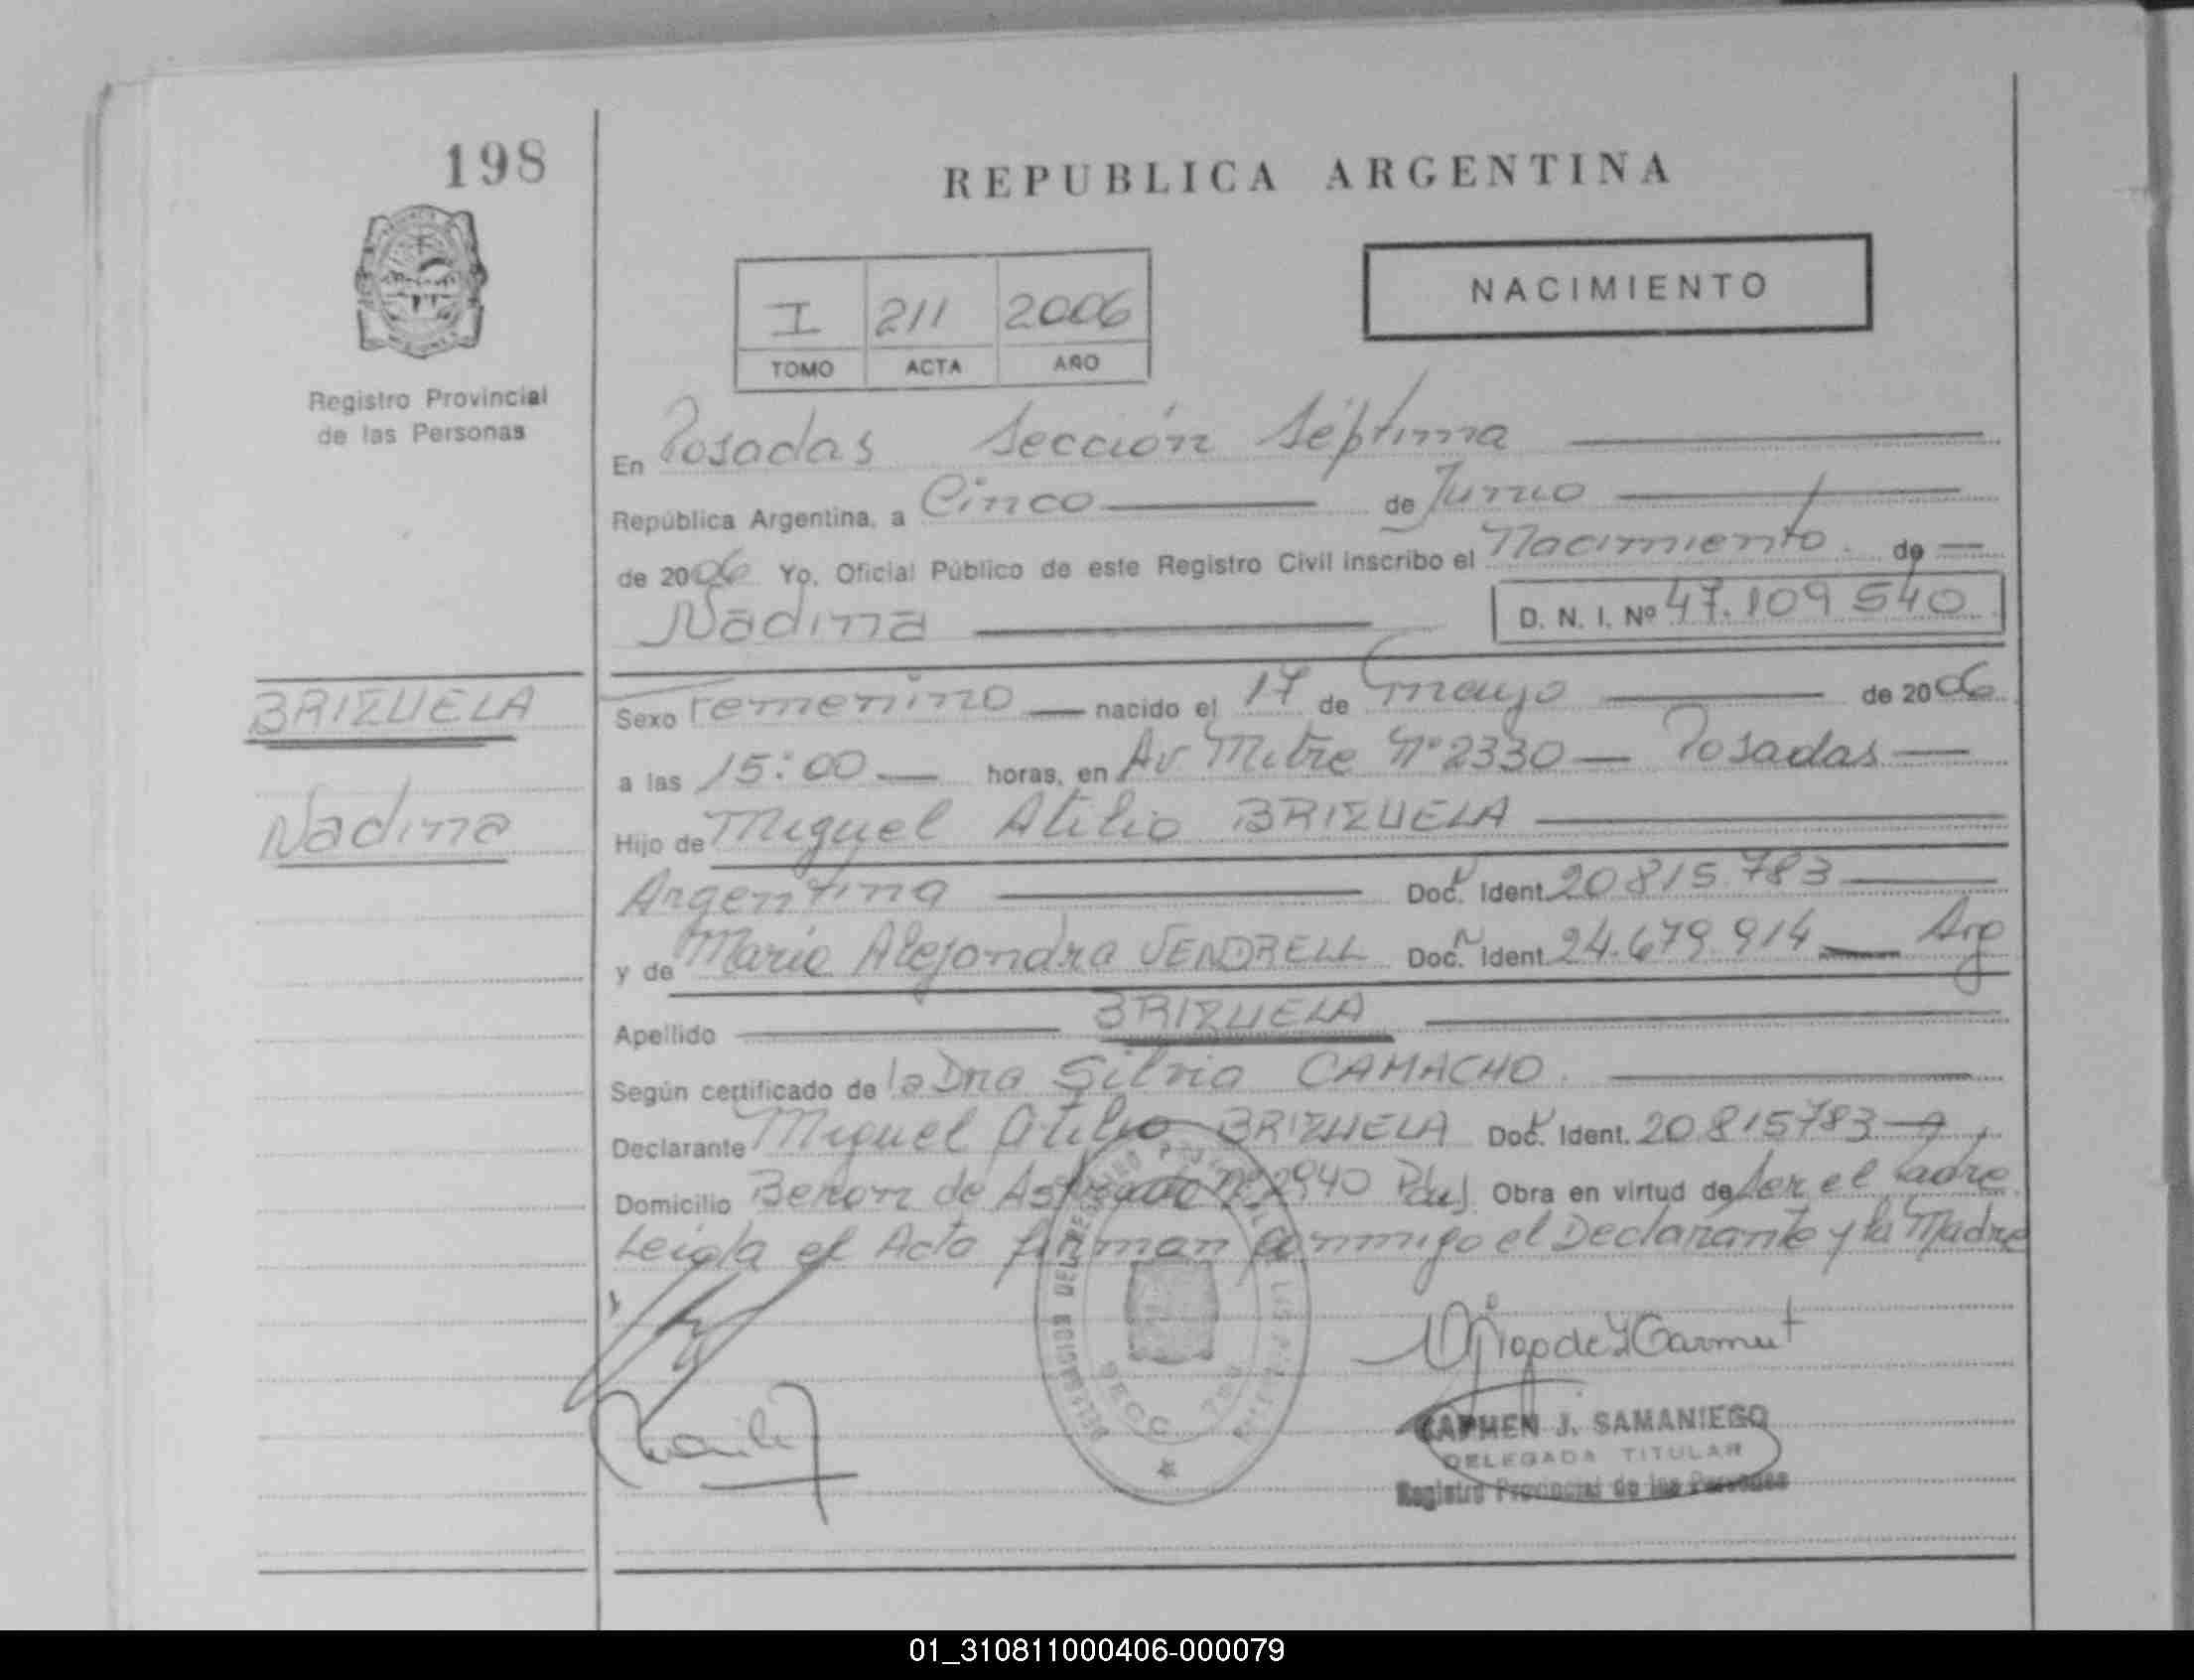 198
REPUBLICA ARGENTINA
NACIMIENTO
I 211 2006
TOMO ACTA AÑO
Registro Provincial
de las Personas
En Posadas Sección Séptima
República Argentina, a Cinco de Junio
de 2006 Yo, Oficial Público de este Registro Civil inscribo el Nacimiento de
Nadina D. N. I. Nº 47.109 540
BRIZUELA
Nadina
Sexo Femenino nacido el 17 de mayo de 2006
a las 15:00 horas, en Av Mitre Nº 2330 - Posadas
Hijo de Miguel Atilio BRIZUELA
Argentina Doc. Ident. 20 815 783
y de Maria Alejandra VENDRELL Doc. Ident. 24.679 914 Arg
Apellido BRIZUELA
Según certificado de la Dra Silvia CAMACHO.
Declarante Miguel Atilio BRIZUELA Doc. Ident. 20 815783
Domicilio Beron de Astrada Nº 2940 Pdas Obra en virtud de ser el Padre
Leida el Acta firman conmigo el Declarante y la Madre
CARMEN J. SAMANIEGO
DELEGADA TITULAR
Registro Provincial de las Personas
01_310811000406-000079